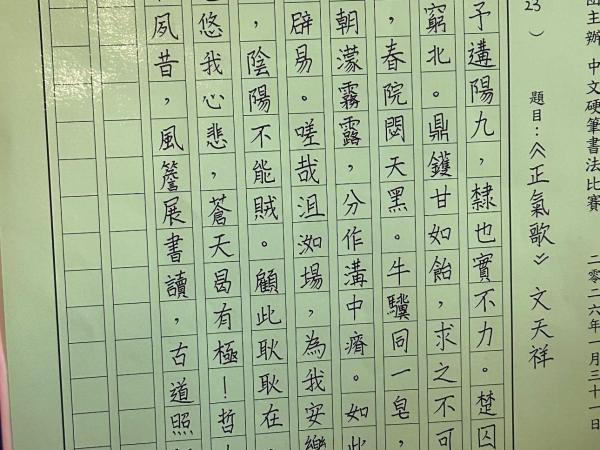 主辦 中文硬筆書法比賽 二零二六年一月三十一日
23 ） 題目：《正氣歌》 文天祥
予遘陽九，隸也實不力。楚囚
窮北。鼎鑊甘如飴，求之不可
，春院閟天黑。牛驥同一皂，
朝濛霧露，分作溝中瘠。如此
辟易。嗟哉沮洳場，為我安樂
，陰陽不能賊。顧此耿耿在
悠我心悲，蒼天曷有極！哲
夙昔，風簷展書讀，古道照